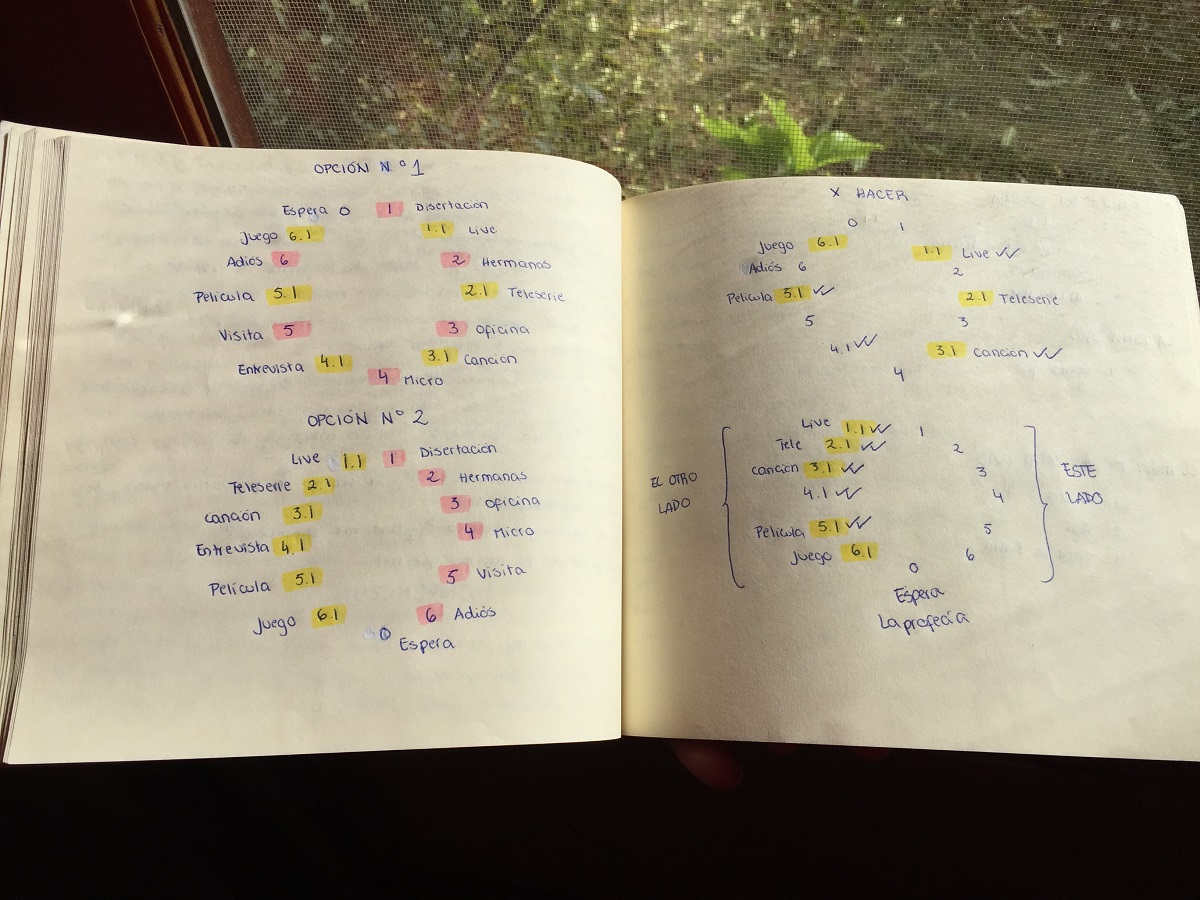 OPCIÓN Nº 1
Espera 0 1 Disertación
Juego 6.1 1.1 Live
Adiós 6 2 Hermanas
Película 5.1 2.1 Teleserie
Visita 5 3 Oficina
Entrevista 4.1 3.1 Canción
4 Micro
OPCIÓN Nº 2
Live 1.1 1 Disertación
Teleserie 2.1 2 Hermanas
Canción 3.1 3 Oficina
Entrevista 4.1 4 Micro
Película 5.1 5 Visita
Juego 6.1 6 Adiós
0 Espera
X HACER
0 1
Juego 6.1 1.1 Live ✓✓
Adiós 6 2
Película 5.1 ✓✓ 2.1 Teleserie
5 3
4.1 ✓✓ 3.1 Canción ✓✓
4
Live 1.1 ✓✓ 1
Tele 2.1 ✓✓ 2
Canción 3.1 ✓✓ 3
EL OTRO LADO
4.1 ✓✓ 4
ESTE LADO
Película 5.1 ✓✓ 5
Juego 6.1 6
0
Espera
La profecía